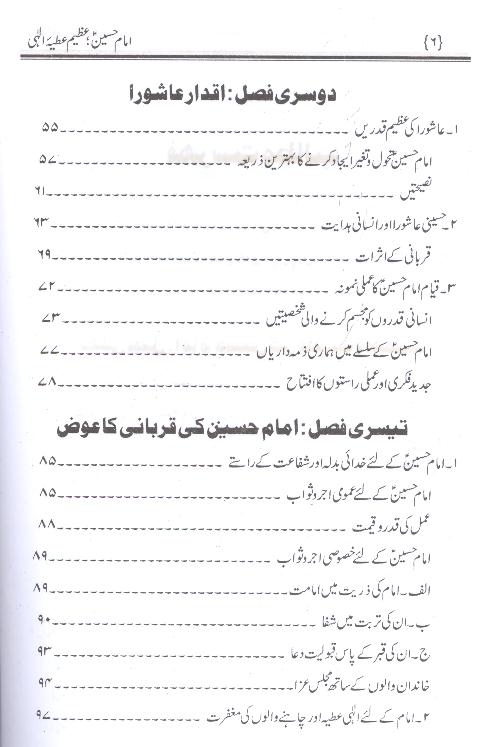 {۶} امام حسینؑ؛ عظیم عطیۂ الٰہی
دوسری فصل: اقدار عاشورا
۱۔عاشورا کی عظیم قدریں ۵۵
امام حسینؑ تحول و تغیر ایجاد کرنے کا بہترین ذریعہ ۵۷
نصیحتیں ۶۱
۲۔حسینی عاشورا اور انسانی ہدایت ۶۳
قربانی کے اثرات ۶۹
۳۔قیام امام حسینؑ کا عملی نمونہ ۷۲
انسانی قدروں کو مجسم کرنے والی شخصیتیں ۷۳
امام حسینؑ کے سلسلے میں ہماری ذمہ داریاں ۷۷
جدید فکری اور عملی راستوں کا افتتاح ۷۸
تیسری فصل: امام حسین کی قربانی کا عوض
۱۔امام حسینؑ کے لئے خدائی بدلہ اور شفاعت کے راستے ۸۵
امام حسینؑ کے لئے عمومی اجر و ثواب ۸۵
عمل کی قدر و قیمت ۸۸
امام حسینؑ کے لئے خصوصی اجر و ثواب ۸۹
الف۔امام کی ذریت میں امامت ۸۹
ب۔ان کی تربت میں شفا ۹۰
ج۔ان کی قبر کے پاس قبولیت دعا ۹۳
خاندان والوں کے ساتھ مجلس عزا ۹۴
۲۔امام کے لئے الٰہی عطیہ اور چاہنے والوں کی مغفرت ۹۷